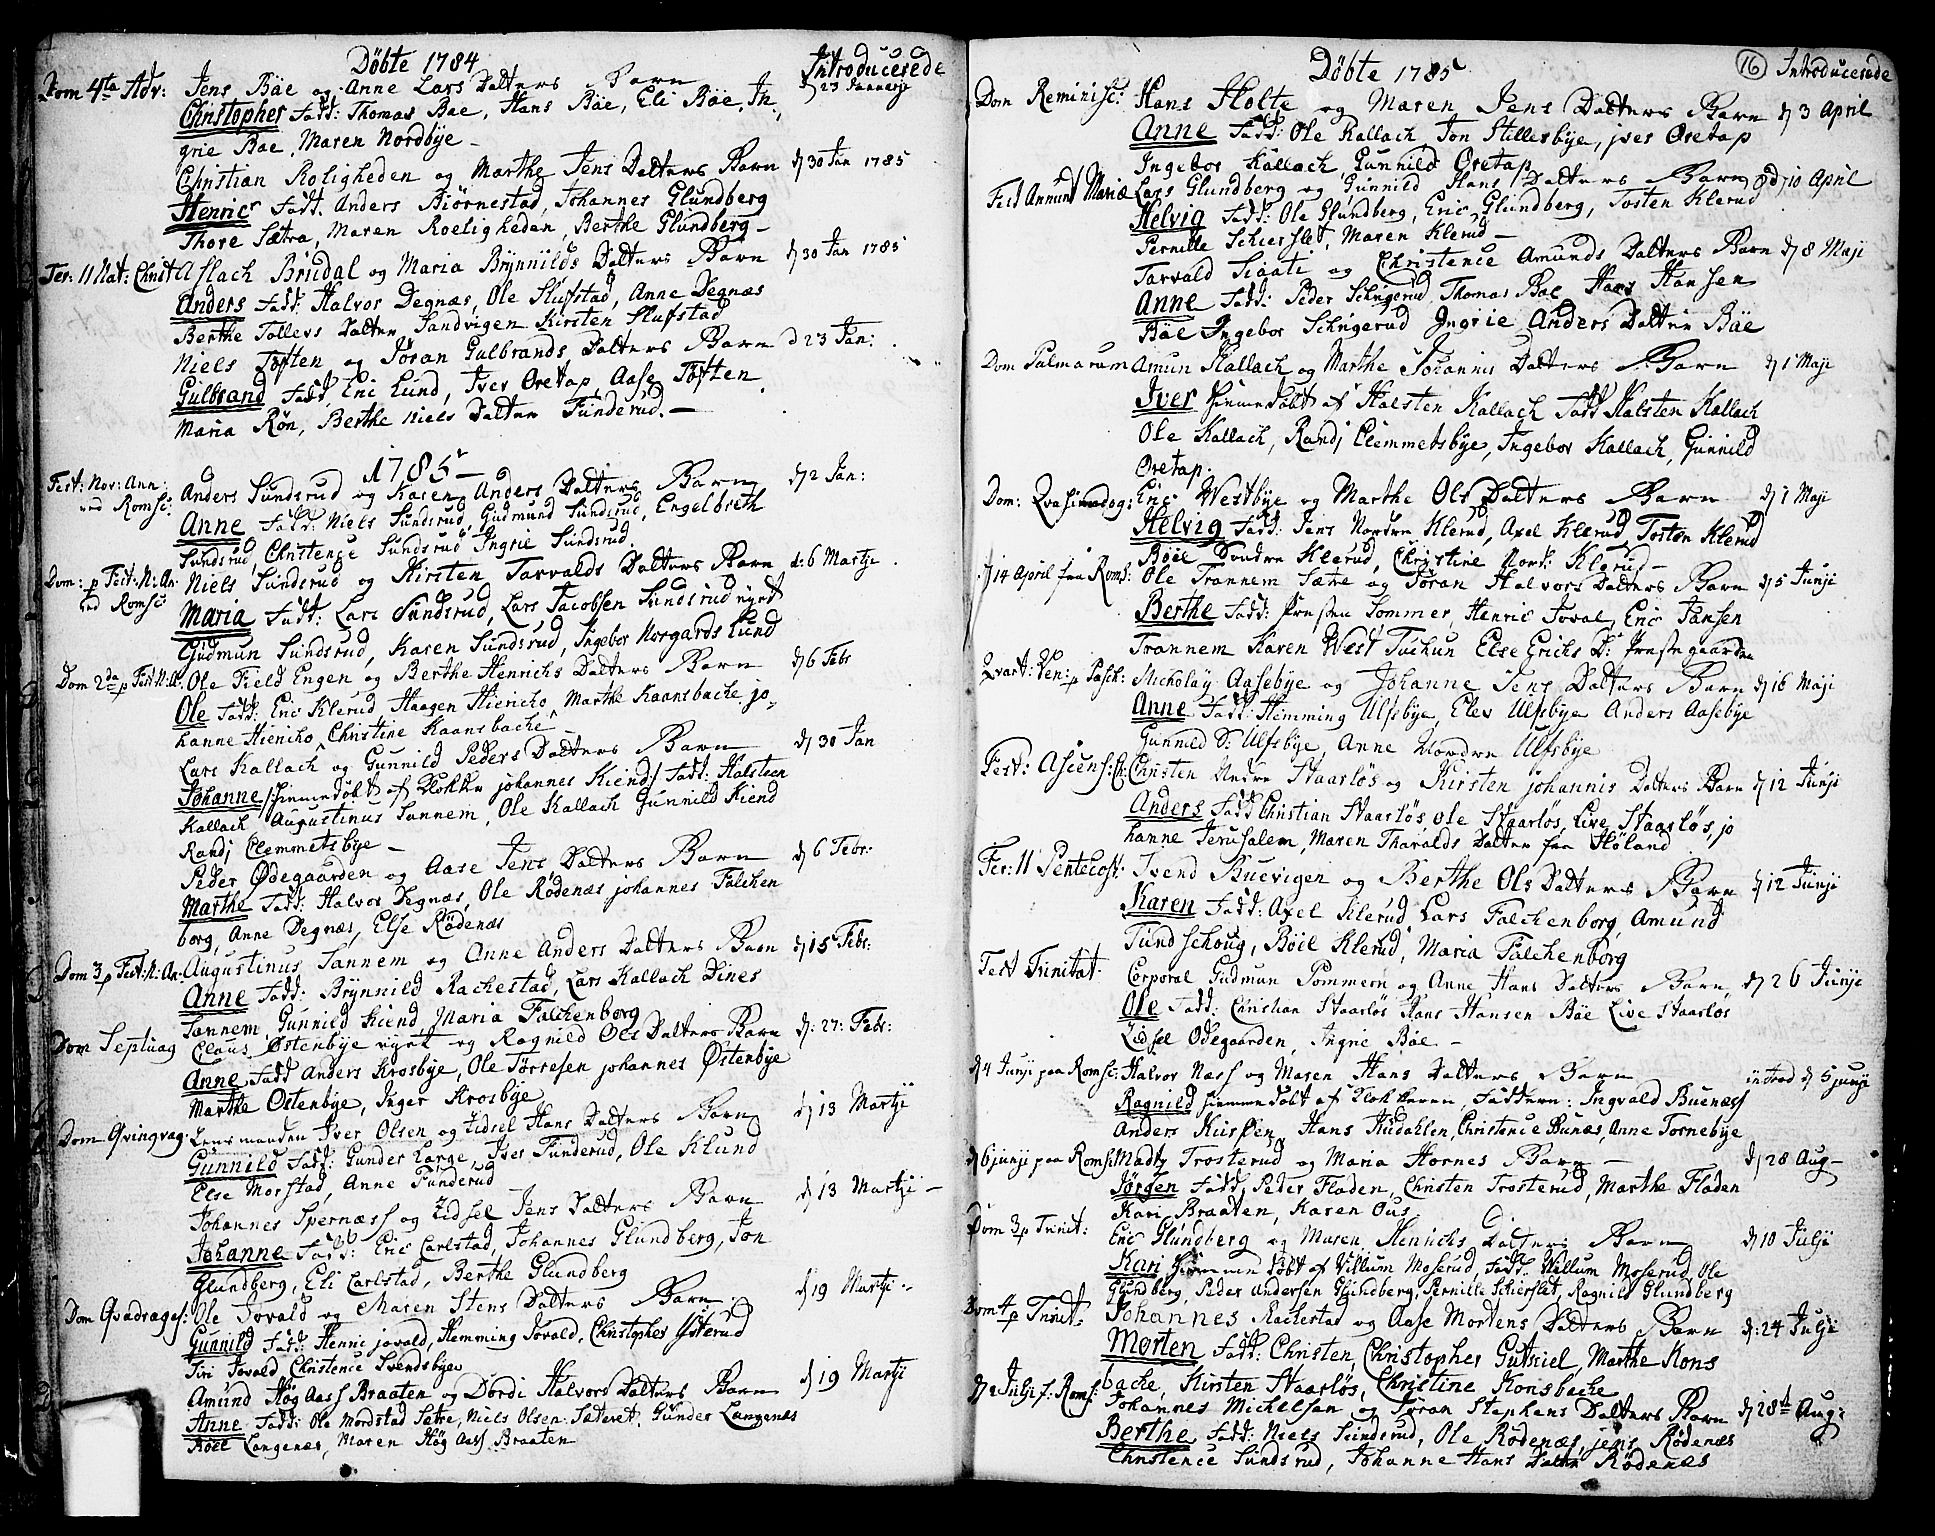 Döbte 1784
Introducerede
Dom 4ta Adv: Jens Böe og Anne Lars Datters Barn d 23 Januarje
Christopher Fadd: Thomas Bae, Hans Böe, Eli Böe, In¬
grie Bae, Maren Nordbÿe
Christian Roligheden og Marthe Jens Datters Barn d 30 Jan 1785
Henric Fadd. Anders Biörnestad, Johannes Glundberg
Thore Sætra, Maren Roeligheden, Berthe Glundberg
Fer: 11 Nat: Christ Aslach Brudal og Maria Brÿnnilds Datters Barn d 30 Jan 1785
Anders Fadd Halvor Degnæs, Ole Slufstad, Anne Degnæs
Berthe Tollevs Datter Sandvigen Kirsten Slufstad
Niels Tofften og Jöran Gulbrands Datters Barn d 23 Jan:
Gulbrand Fadd. Eric Lund, Iver Oretap, Aase Tofften
Maria Rön, Berthe Niels Datter Funderud.
1785
Fest: Nov: Ann: Anders Sundsrud og Karen Anders Datters Barn d 2 Jan:
ved Romsc: Anne Fadd: Niels Sundsrud, Gudmund Sundsrud, Engelbreth
Sundsrud, Christence Sundsrud Ingrie Sundsrud.
Dom: p Fest. N: An: Niels Sundsrud og Kirsten Tarvalds Datters Barn d: 6 Martje
ved Romsc: Maria Fadt: Lars Sundsrud, Lars Jacobsen Sundsrud nyet
Gudmun Sundsrud, Karen Sundsrud, Ingebor Norgards Lund
Dom 2da p Fest N: A: Ole Field Engen og Berthe Henrichs Datters Barn d 6 Febr
Ole Fadd: Eric Klerud Haagen Hiericho, Marthe Kaansbache jo¬
hanne Hiericho, Christine Kaansbache
Lars Kallach og Gunnild Peders Datters Barn d 30 Jan
Johanne hiemmedöbt af Klokker johannes Kiend Fadd: Halsteen
Kallach Augustinus Tannem, Ole Kallach Gunnild Kiend
Randj Clemmetsbÿe
Peder Ødegaarden og Aase Jens Datters Barn d 6 Febr:
Marthe Fadd: Halvor Degnæs, Ole Rödenæs johannes Falchen
borg, Anne Degnæs, Else Rödenæs
Dom 3 p Fest: N: An: Augustinus Tannem og Anne Anders Datters Barn d 15 Febr:
Anne Fadd: Brÿnnild Rachestad, Lars Kallach Dines
Tannem, Gunnild Kiend, Maria Falchenborg
Dom Septuag Claus Østenbÿe nyet og Ragnild Ols Datters Barn d: 27: Febr:
Anne Fadd Anders Krosbÿe, Ole Törresen johannes Østenbÿe
Marthe Østenbÿe, Inger Krosbÿe
Dom Qvinqvag. Lensmanden Iver Olsen og Zidsel Hans Datters Barn d 13 Martÿ
Gunnild Fadd: Gunder Large, Iver Funderud, Ole Klund
Else Morstad, Anne Funderud
Johannes Spernæss og Zidsel Jens Datters Barn d 13 Martÿ
Johanne Fadd: Eric Carlstad, Johannes Glundberg, Jon
Glundberg, Eli Carlstad, Berthe Glundberg
Dom Qvadrages: Ole Jovald og Maren Stens Datters Barn d 19 Martje
Gunnild Fadd: Henric jovald, Hemming Jovald, Christopher Ysterud
Siri Jovald Christence Svendsbÿe
Amund Høg Aass Braaten og Dordi Halvors Datters Barn d 19 Martÿ
Anne Fadd: Ole Mordstad Sætre, Niels Olsen Sæteret, Gunder Langenæs
Böel Langenæs, Maren Høg Aass Braaten
Döbte 1785
16
Introducerede
Dom Reminisc: Hans Holte og Maren Jens Datters Barn d 3 April
Anne Fadd: Ole Kallach, Jon Hillesbÿe, jver Oretap
Ingebor Kallach, Gunnild Oretap
Fest Annunt Mariæ Lars Glundberg og Gunnild Hans Datters Barn d 10 April
Helvig Fadd: Ole Glundberg, Eric Glundberg, Tosten Klerud
Pernille Schierslet, Maren Klerud
Tarvald Tigati og Christence Amunds Datters Barn d 8 Maji
Anne Fadd: Peder Schrigerud, Thomas Bae, Hans Hansen
Böe Ingebor Schrigerud Ingrie Anders Datter Böe
Dom Palmarum Amun Kallach og Marthe Johannis Datters Barn d 1 Maji
Iver hiemmedöbt af Halsten Kallach Fadd Halsten Kallach
Ole Kallach, Randj Clemmetsbÿe, Ingebor Kallach, Gunnild
Oretap.
Dom: Qvasimodog: Eric Westbÿe og Marthe Ols Datters Barn d 1 Maji
Helvig Fadd: Jens Nordre Klerud, Axel Klerud, Tosten Klerud
Böel Söndre Klerud, Christine Nord: Klerud
d 14 April fra Roms: Ole Trannem Sære og Jöran Halvors Datters Barn d 5 Junji
Berthe Fadd: Præsten Sommer, Henric Joval, Eric Jansen
Trannem Karen West Tuchun Else Erichs D: Præstegaarden
Qvart: Ven: p Pasch: Nicholay Aasebÿe og Johanne Jens Datters Barn d 16 Maji
Anne Fadd: Hemming Ulfsbÿe, Elev Ulfsbÿe Anders Aasebÿe
Gunnild S: Ulfsbÿe, Anne Nordre Ulfsbÿe
Fest: Ascens: C: Christen Nedre Haarløs og Kirsten johannis Datters Barn d 12 Junji
Anders Fadd Christian Haarløs ole Haarløs, Live Haarløs, jo
hanne Jerusalem, Maren Tharalds Datter fra Høland
Fer: 11 Pentecost: Svend Buevigen og Berthe Ols Datters Barn d 12 Junji
Karen Fadd: Axel Klerud Lars Falchenborg, Amund
Tundschoug, Böel Klerud, Maria Falchenborg
Fest Trinitat. Corporal Gudmun Pommern og Anne Hans Datters Barn, d 26 Junji
Ole Fadd: Christian Haarløs Hans Hansen Böe Live Haarløs
Zidsel Odegaarden, Ingrie Böe
d 4 Junji paa Romsc: Halvor Næss og Maren Hans Datters Barn introd d 5 junji
Ragnild hiemmedöbt af Klokkeren, Faddern: Ingvald Buenæss
Anders Kussen, Hans Hudahlen, Christence Bunæs, Anne Tornebÿe
d 6 junji paa Romsc: Madtz Trosterud og Maria Hornes Barn d 28 Aug
Jörgen Fadd, Peder Fladen, Christen Trosterud, Marthe Fladen
Kari Braaten, Karen Ous.
Dom 3 p Trinit: Eric Glundberg og Maren Henrichs Datters Barn d 10 Julji
Kari Hiemmedöbt af Villum Moserud, Fadd. Willum Moserud, Ole
Glundberg, Peder Andersen Glundberg, Pernille Schierslet, Ragnild Glundberg
Dom 4 p Trinit. Johannes Rachestad og Aase Mortens Datters Barn d: 24 Julji
Morten Fadd: Christen, Christopher Gutsiel, Marthe Kons
bache, Kirsten Haarløs, Christine Konsbache
d 2 Julji f: Roms: Johannes Michelsen og Joran Stephens Datters Barn d 28th Aug:
Berthe, Fadd: Niels Sundsrud, Ole Rödenæs, jens Rödenæs
Christence Sundsrud, Johanne Hans Datter Rödenæs